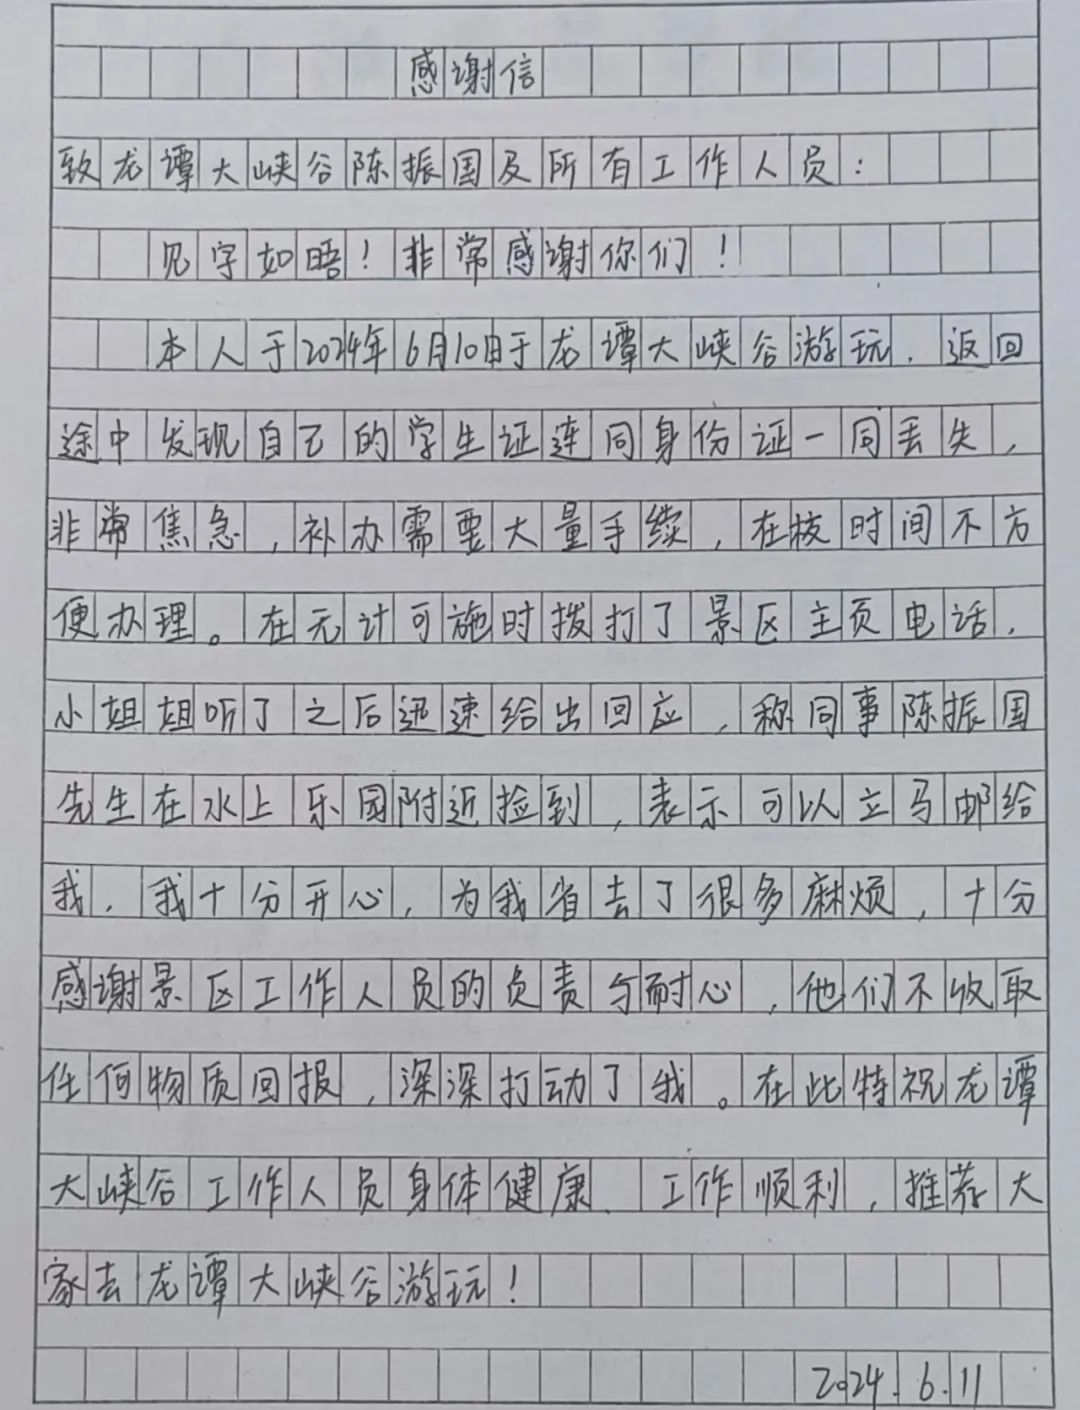 感谢信
致龙谭大峡谷陈振国及所有工作人员：
见字如晤！非常感谢你们！
本人于2024年6月10日于龙谭大峡谷游玩，返回
途中发现自己的学生证连同身份证一同丢失，
非常焦急，补办需要大量手续，在校时间不方
便办理。在无计可施时拨打了景区主页电话，
小姐姐听了之后迅速给出回应，称同事陈振国
先生在水上乐园附近捡到，表示可以立马邮给
我，我十分开心，为我省去了很多麻烦，十分
感谢景区工作人员的负责与耐心，他们不收取
任何物质回报，深深打动了我。在此特祝龙谭
大峡谷工作人员身体健康、工作顺利，推荐大
家去龙谭大峡谷游玩！
2024.6.11